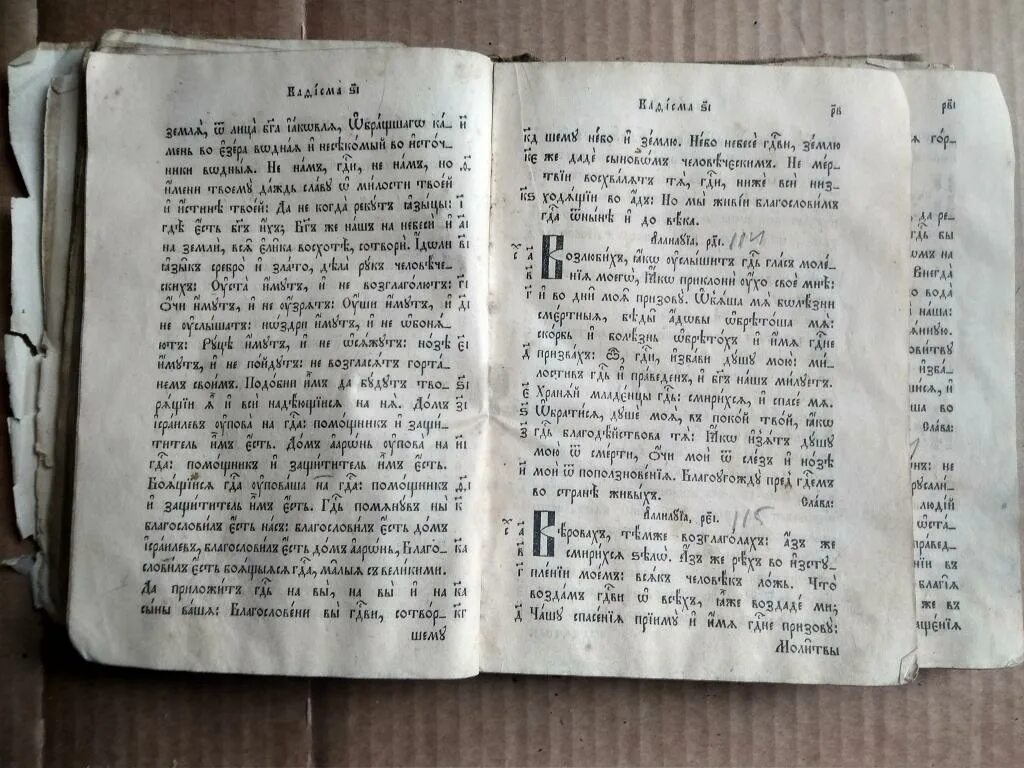 Каѳі́сма ѕ҃і
землѧ̀, ѿ лица̀ бг҃а і҆а́кѡвлѧ, Ѡ҆бра́щшагѡ ка́- и҃
мень во є҆зє́ра вѡдна́ѧ и҆ несѣко́мый во и҆сто́ч-
ники вѡдны́ѧ. Не на́мъ, гдⷭ҇и, не на́мъ, но ѳ҃.
и҆́мени твоемꙋ̀ да́ждь сла́вꙋ ѡ҆ ми́лости твое́й
и҆ и҆́стинѣ твое́й: Да не когда̀ рекꙋ́тъ ꙗ҆зы́цы: і҃
гдѣ̀ є҆́сть бг҃ъ и҆́хъ; Бг҃ъ же на́шъ на небесѝ и҆ а҃і
на землѝ, всѧ̑ є҆ли̑ка восхотѣ̀, сотворѝ. І҆́дѡли в҃і
ꙗ҆зы̑къ сребро̀ и҆ зла́то, дѣла̀ рꙋ́къ человѣ́че-
скихъ: Оу҆ста̀ и҆́мꙋтъ, и҆ не возглаго́лютъ: г҃і
ѻ҆́чи и҆́мꙋтъ, и҆ не оу҆́зрѧтъ: Оу҆́ши и҆́мꙋтъ, и҆ д҃і
не оу҆слы́шатъ: нѡ́здри и҆́мꙋтъ, и҆ не ѡ҆боnѧ́-
ютъ: Рꙋ́цѣ и҆́мꙋтъ, и҆ не ѡ҆сѧ́жꙋтъ: но́зѣ є҃і
и҆́мꙋтъ, и҆ не по́йдꙋтъ: не возгласѧ́тъ горта́-
немъ свои́мъ. Подо́бни и҆̀мъ да бꙋ́дꙋтъ тво- ѕ҃і
рѧ́щїи ѧ҆̀ и҆ всѝ надѣ́ющїисѧ на нѧ̀. До́мъ з҃і
і҆и҃левъ оу҆пова̀ на гдⷭ҇а: помо́щникъ и҆ защи́-
титель и҆̀мъ є҆́сть. До́мъ а҆арѡ́нь оу҆пова̀ на и҃і
гдⷭ҇а: помо́щникъ и҆ защи́титель и҆̀мъ є҆́сть.
Боѧ́щїисѧ гдⷭ҇а оу҆пова́ша на гдⷭ҇а: помо́щникъ ѳ҃і
и҆ защи́титель и҆̀мъ є҆́сть. Гдⷭ҇ь помѧнꙋ́въ ны̀ к҃
благослови́лъ є҆́сть на́съ: благослови́лъ є҆́сть до́мъ
і҆сра́илевъ, благослови́лъ є҆́сть до́мъ а҆арѡ́нь, Благо- к҃а
слови́лъ є҆́сть боѧ́щыѧсѧ гдⷭ҇а, ма̑лыѧ съ вели́кими.
Да приложи́тъ гдⷭ҇ь на вы̀, на вы̀ и҆ на к҃в
сы́ны ва́шѧ: Благослове́ни вы̀ гдⷭ҇ви, сотво́р- к҃г
шемꙋ
Каѳі́сма ѕ҃і р҃в
к҃д шемꙋ не́бо и҆ зе́млю. Не́бо небесѐ гдⷭ҇ви, зе́млю
к҃є же дадѐ сыновѡ́мъ человѣ́ческимъ. Не ме́р-
твїи восхва́лѧтъ тѧ̀, гдⷭ҇и, нижѐ всѝ низ-
к҃ѕ ходѧ́щїи во а҆́дъ: Но мы̀ живі́и благослови́мъ
гдⷭ҇а ѿнн҃ѣ и҆ до вѣ́ка.
Аллилꙋ́їа, рд҃і. 114
а҃ Возлюби́хъ, ꙗ҆́кѡ оу҆слы́шитъ гдⷭ҇ь гла́съ моле́-
в҃ нїѧ моегѡ̀, Ꙗ҆́кѡ приклонѝ оу҆́хо своѐ мнѣ̀:
г҃ и҆ во дни̑ моѧ̑ призовꙋ̀. Ѡ҆б̾ѧ́ша мѧ̀ бѡлѣ́зни
сме́ртныѧ, бѣды̑ а҆́довы ѡ҆брѣто́ша мѧ̀:
ско́рбь и҆ болѣ́знь ѡ҆брѣто́хъ и҆ и҆́мѧ гдⷭ҇не
д҃ призва́хъ: ѽ, гдⷭ҇и, и҆зба́ви дꙋ́шꙋ мою̀: ми́-
лостивъ гдⷭ҇ь и҆ пра́веденъ, и҆ бг҃ъ на́шъ ми́лꙋетъ.
є҃ Хранѧ́й младе́нцы гдⷭ҇ь: смири́хсѧ, и҆ спасе́ мѧ.
ѕ҃ Ѡ҆брати́сѧ, дꙋшѐ моѧ̀, въ поко́й тво́й, ꙗ҆́кѡ
з҃ гдⷭ҇ь благодѣ́йствова тѧ̀: Ꙗ҆́кѡ и҆з̾ѧ́тъ дꙋ́шꙋ
мою̀ ѿ сме́рти, ѻ҆́чи моѝ ѿ сле́зъ и҆ но́зѣ
и҃ моѝ ѿ поползнове́нїѧ. Благоꙋгождꙋ̀ пред̾ гдⷭ҇емъ
во странѣ̀ живы́хъ.
Сла́ва:
Аллилꙋ́їа, рє҃і. 115
а҃ Вѣ́ровахъ, тѣ́мже возглаго́лахъ: а҆́зъ же
в҃ смири́хсѧ ѕѣлѡ̀. А҆́зъ же рѣ́хъ во и҆зстꙋ-
г҃ пле́нїи мое́мъ: всѧ́къ человѣ́къ ло́жь. Что̀
возда́мъ гдⷭ҇ви ѡ҆ всѣ́хъ, ꙗ҆̀же воздаде́ ми;
д҃ Ча́шꙋ спасе́нїѧ прїимꙋ̀ и҆ и҆́мѧ гдⷭ҇не призовꙋ̀:
Моли́твы
рв҃і
ѧ го́р-
да ре-
гдⷭ҇ь бы
на
Внегда̀
вода̀
на́ша:
во
Сла́ва:
не
лю́дїй
же въ